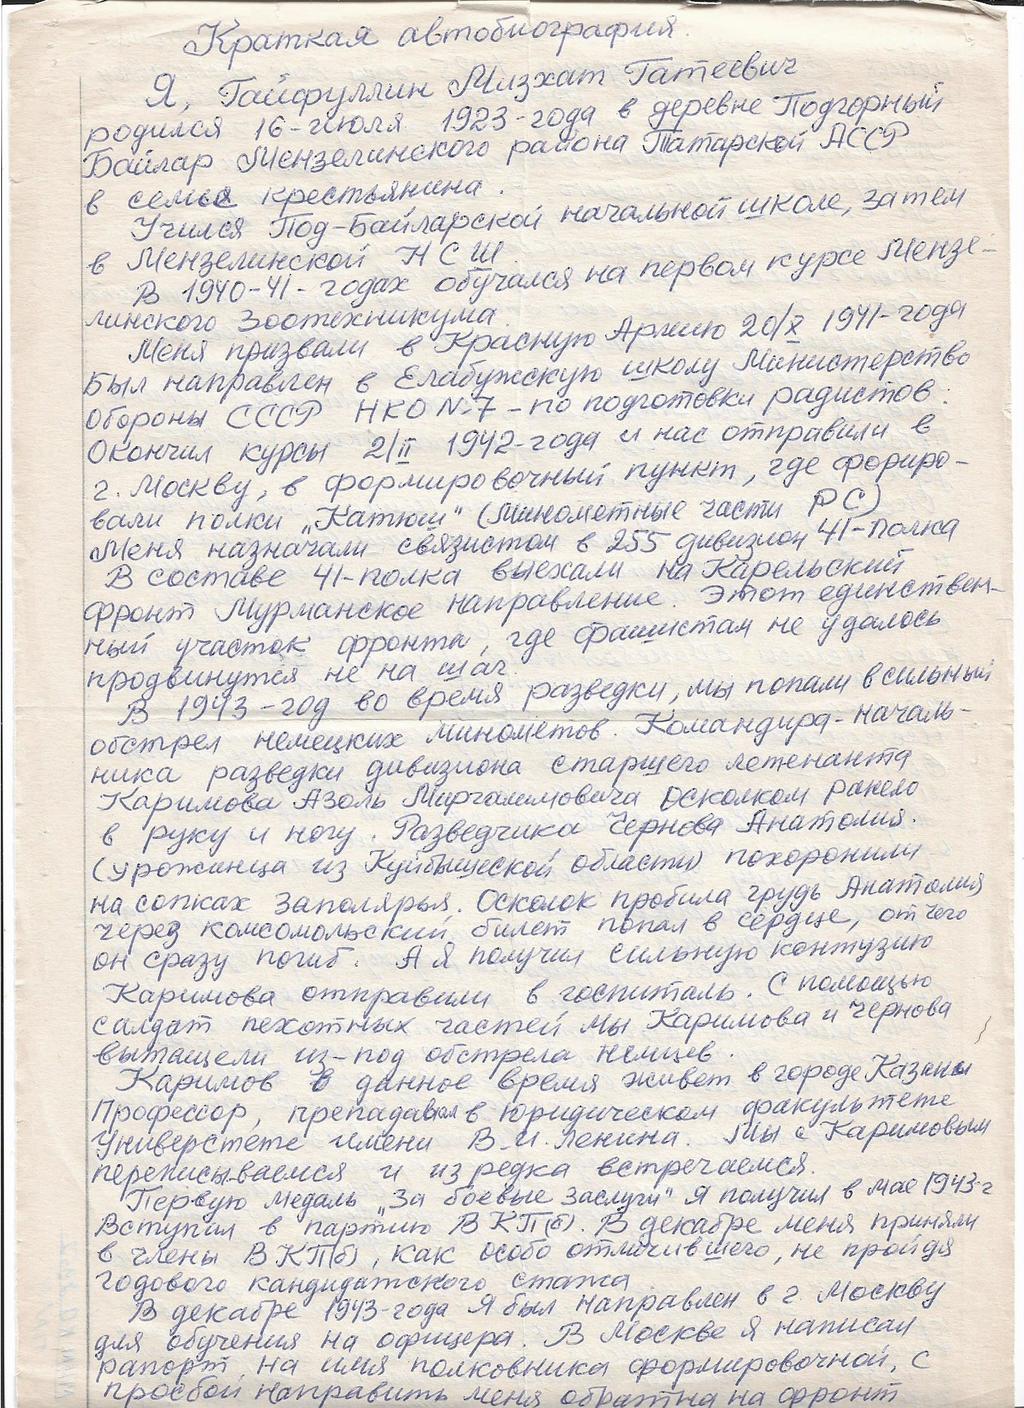 Краткая автобиография.
Я, Гайфуллин Мизхат Гатеевич
родился 16-июля 1923-года в деревне Подгорный
Байлар Мензелинского района Татарской АССР
в семье крестьянина.
Учился Под-Байларской начальной школе, затем
в Мензелинской НСШ
В 1940-41-годах обучался на первом курсе Мензе-
линского Зоотехникума
Меня призвали в Красную Армию 20/X 1941-года
Был направлен в Елабужскую школу Министерство
Обороны СССР НКО №7 - по подготовки радистов.
Окончил курсы 2/II 1942-года и нас отправили в
г. Москву, в формировочный пункт, где форииро-
вали полки „Катюш" (Минометные части РС)
Меня назначали связистом в 255 дивизион 41-полка
В составе 41-полка выехали на Карельский
фронт Мурманское направление. Этот единствен-
ный участок фронта, где фашистам не удалось
продвинутся не на шаг.
В 1943-год во время разведки, мы попали в сильный
обстрел немецких минометов. Командира-началь-
ника разведки дивизиона старшего летенанта
Каримова Азоль Миргалимовича осколком ранело
в руку и ногу. Разведчика Чернова Анатолия.
(урожанца из Куйбышеской области) похоронили
на сопках Заполярья. Осколок пробила грудь Анатолия
через комсомольский билет попал в сердце, от чего
он сразу погиб. А я получил сильную контузию
Каримова отправили в госпиталь. С помощью
салдат пехотных частей мы Каримова и Чернова
вытащели из-под обстрела немцев.
Каримов в данное время живет в городе Казани
Профессор, препадавал в Юридическом факультете
Универстете имени В.И. Ленина. Мы с Каримовым
переписываемся и изредка встречаемся.
Первую медаль „За боевые заслуги" Я получил в мае 1943-г
Вступил в партию ВКП(б). В декабре меня приняли
в члены ВКП(б), как особо отличившего, не пройдя
годового кандидатского стажа
В декабре 1943-года Я был направлен в г. Москву
для обучения на офицера. В Москве я написал
рапорт, на имя полковника формировочной, с
просбой направить меня обратна на фронт